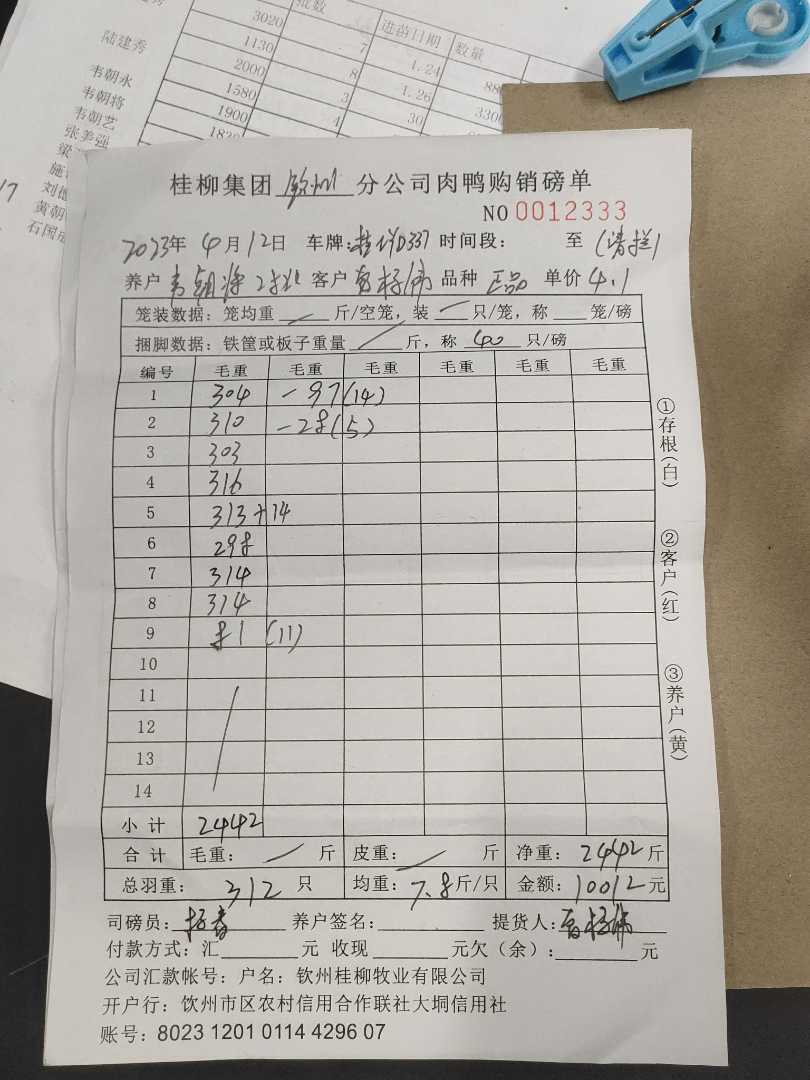 批数
进苗日期
数量
3020
7
1.24
陆建秀
1130
8
1.26
韦朝永
2000
3
30
3300
韦朝将
1580
4
韦朝艺
1900
张美强
桂柳集团 钦州 分公司肉鸭购销磅单
NO 0012333
2023年 4月 12日 车牌: D337 时间段: 至 (清栏)
养户 韦朝将 客户 品种 正品 单价 4.1
笼装数据: 笼均重 / 斤/空笼, 装 / 只/笼, 称 笼/磅
捆脚数据: 铁筐或板子重量 / 斤, 称 40 只/磅
编号 毛重 毛重 毛重 毛重 毛重 毛重
1 304 -97(14)
2 310 -28(5)
3 303
4 316
5 313+14
6 298
7 314
8 314
9 81 (11)
10
11
12
13
14
小计 2442
合计 毛重: / 斤 皮重: / 斤 净重: 2442 斤
总羽重: 312 只 均重: 7.8 斤/只 金额: 10012 元
司磅员: 养户签名: 提货人:
付款方式: 汇 元 收现 元欠(余): 元
公司汇款帐号: 户名: 钦州桂柳牧业有限公司
开户行: 钦州市区农村信用合作联社大垌信用社
账号: 8023 1201 0114 4296 07
①存根(白)
②客户(红)
③养户(黄)